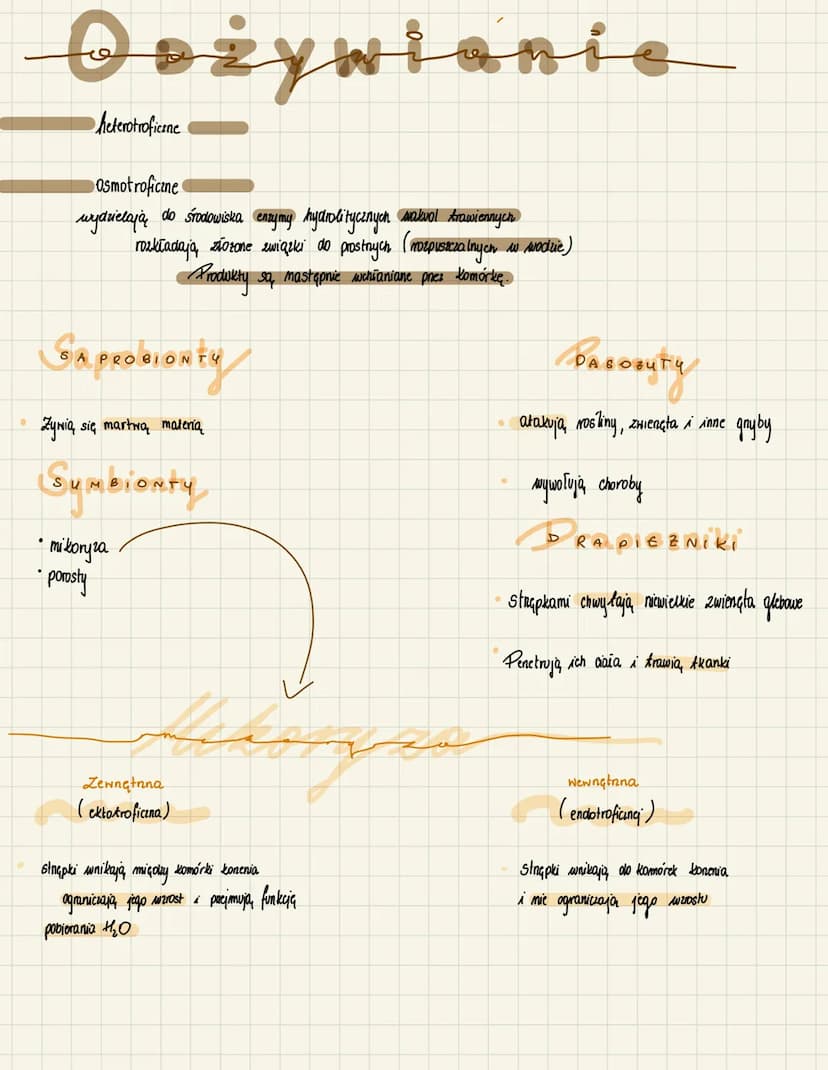 Odżywianie
heterotroficzne
osmotroficzne
wydzielają do środowiska enzymy hydrolitycznych wakuol trawiennych
rozkładają złożone związki do prostych (rozpuszczalnych w wodzie)
Produkty są następnie wchłaniane przez komórkę.
SAPROBIONTY
• Żywią się martwą materią
SYMBIONTY
• mikoryza
• porosty
PASOŻYTY
• atakują rośliny, zwierzęta i inne grzyby
• wywołują choroby
DRAPIEŻNIKI
• Strzępkami chwytają niewielkie zwierzęta glebowe
• Penetrują ich ciała i trawią tkanki
Mikoryza
Zewnętrzna
(ektotroficzna)
• strzępki wnikają między komórki korzenia
ograniczają jego wzrost i przejmują funkcję
pobierania H₂O
Wewnętrzna
(endotroficzna)
• Strzępki wnikają do komórek korzenia
i nie ograniczają jego wzrostu